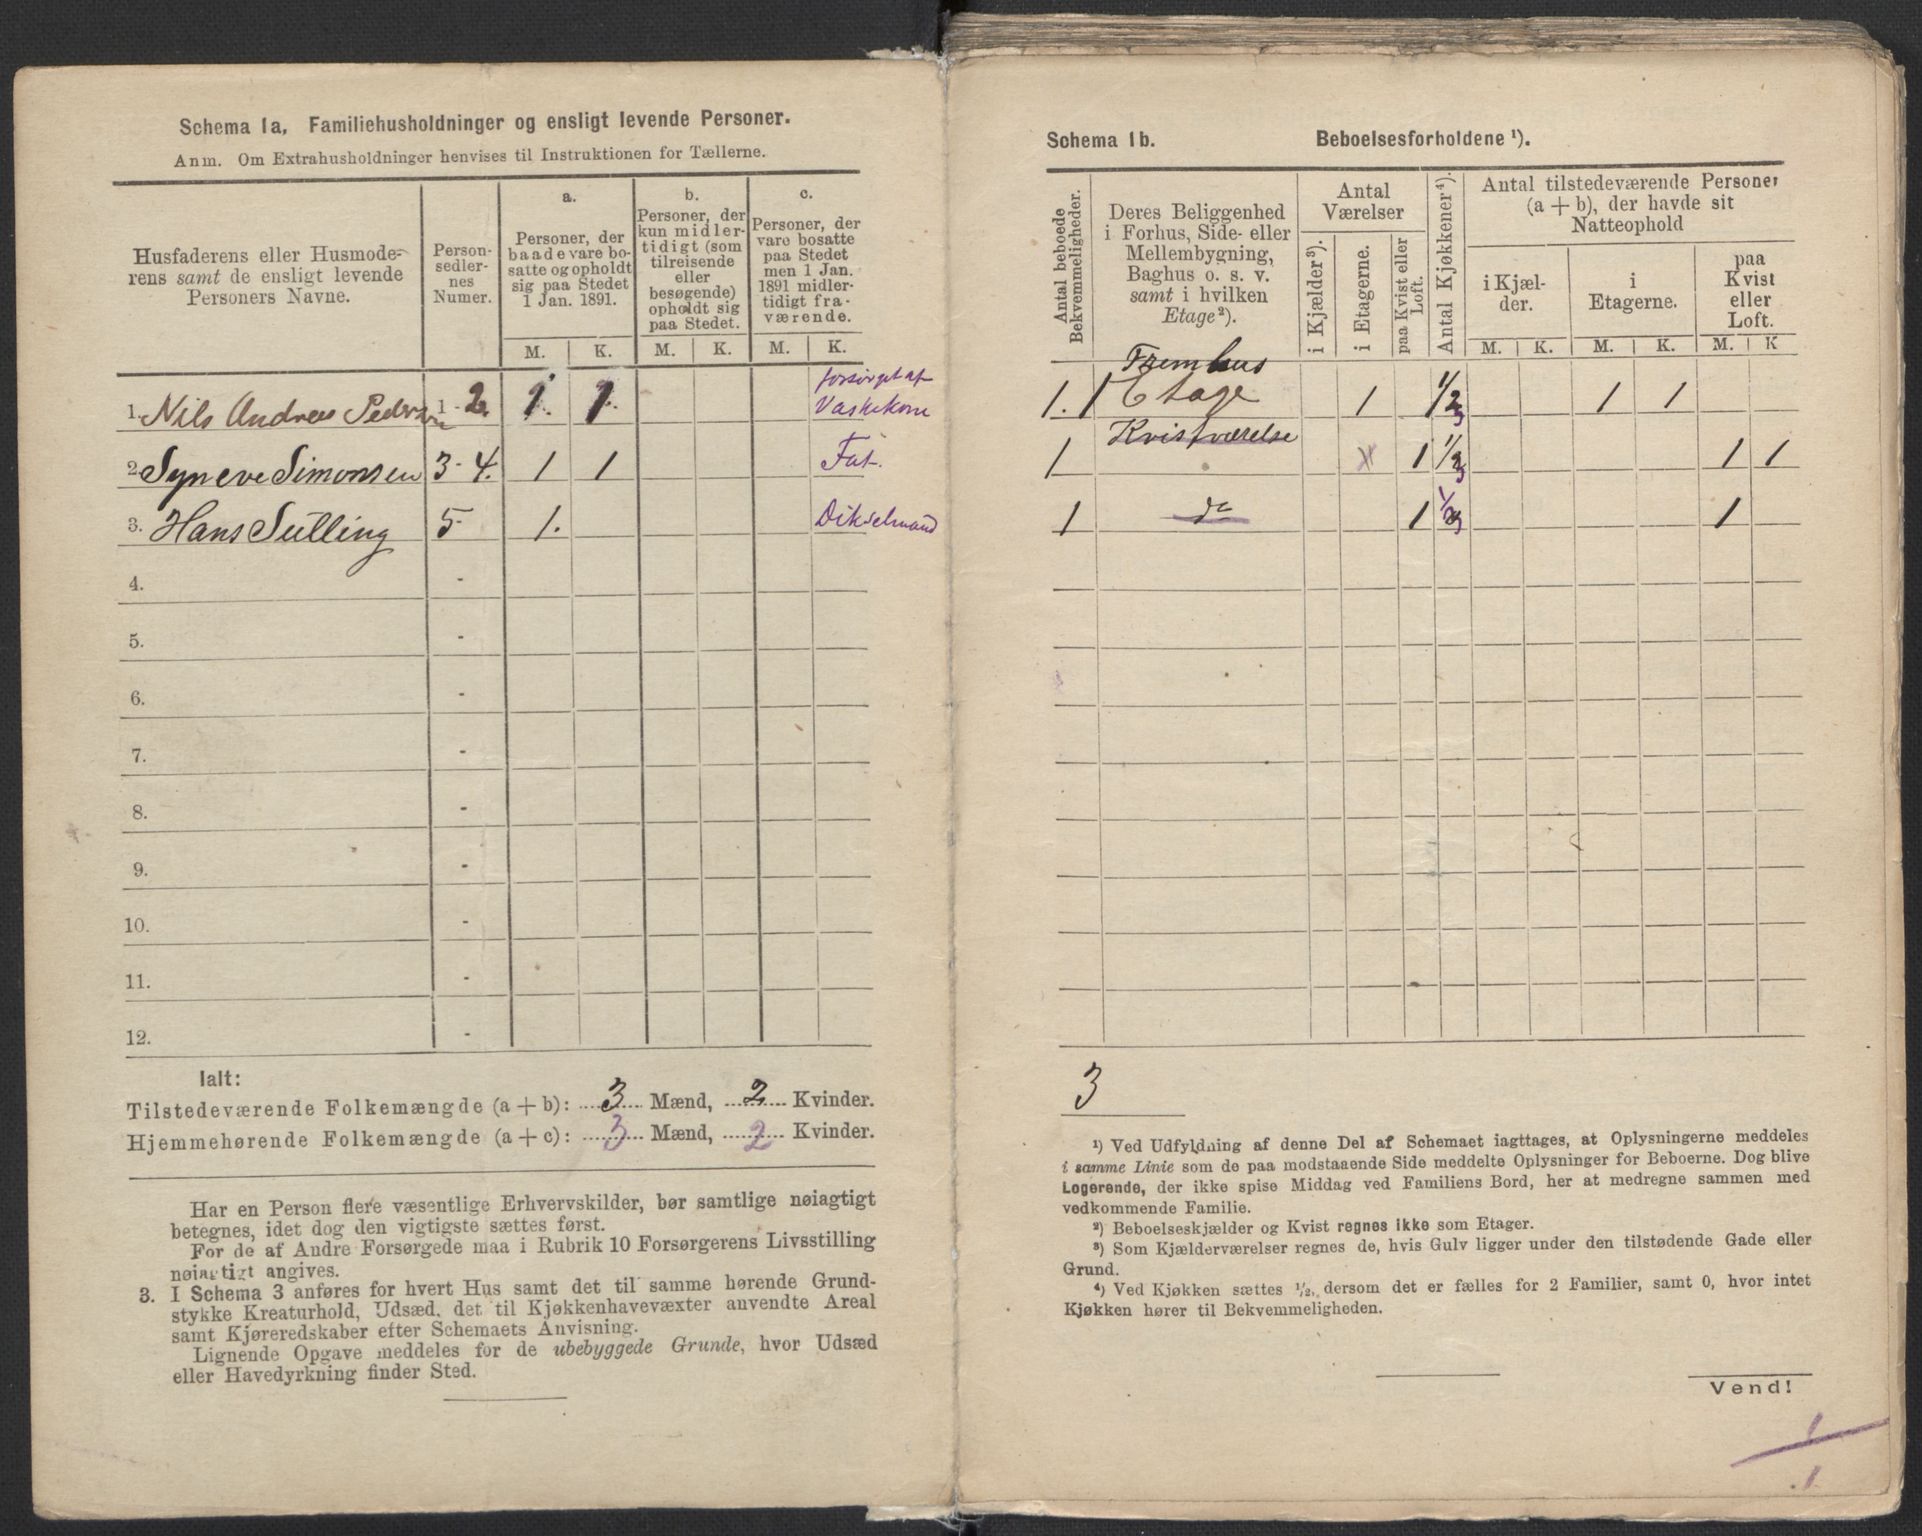 Schema 1a, Familiehusholdninger og ensligt levende Personer.
Anm. Om Extrahusholdninger henvises til Instruktionen for Tællerne.
Husfaderens eller Husmode-
rens samt de ensligt levende
Personers Navne.
Person-
sedler-
nes
Numer.
a.
Personer, der
baade vare bo-
satte og opholdt
sig paa Stedet
1 Jan. 1891.
b.
Personer, der
kun midler-
tidigt (som
tilreisende
eller
besøgende)
opholdt sig
paa Stedet.
c.
Personer, der
vare bosatte
paa Stedet
men 1 Jan.
1891 midler-
tidigt fra-
værende.
M. K. M. K. M. K.
forsørget af
1. Nils Andreas Pedersen 1 - 2. 1. 1. Vaskekone
2. Syneve Simonsen 3 - 4. 1 1 Fat.
3. Hans Sulling 5 - 1.
4. -
5. -
6. -
7. -
8. -
9. -
10. -
11. -
12. -
Ialt:
Tilstedeværende Folkemængde (a + b): 3 Mænd, 2 Kvinder.
Hjemmehørende Folkemængde (a + c): 3 Mænd, 2 Kvinder.
Har en Person flere væsentlige Erhvervskilder, bør samtlige nøiagtigt
betegnes, idet dog den vigtigste sættes først.
For de af Andre Forsørgede maa i Rubrik 10 Forsørgerens Livsstilling
nøiagtigt angives.
3. I Schema 3 anføres for hvert Hus samt det til samme hørende Grund-
stykke Kreaturhold, Udsæd, det til Kjøkkenhavevæxter anvendte Areal
samt Kjøreredskaber efter Schemaets Anvisning.
Lignende Opgave meddeles for de ubebyggede Grunde, hvor Udsæd
eller Havedyrkning finder Sted.
Schema 1b. Beboelsesforholdene ¹).
Antal beboede
Bekvemmeligheder.
Deres Beliggenhed
i Forhus, Side- eller
Mellembygning,
Baghus o. s. v.
samt i hvilken
Etage²).
Antal
Værelser
i Kjælder³).
i Etagerne.
paa Kvist eller
Loft.
Antal Kjøkkener⁴).
Antal tilstedeværende Personer
(a + b), der havde sit
Natteophold
i Kjæl-
der.
i
Etagerne.
paa
Kvist
eller
Loft.
M. K. M. K. M. K
Fremhus
1. 1 Etage 1 1/3 1 1
Kvistværelse
1 1 1/3 1 1
1 do 1 1/3 1
3
¹) Ved Udfyldning af denne Del af Schemaet iagttages, at Oplysningerne meddeles
i samme Linie som de paa modstaaende Side meddelte Oplysninger for Beboerne. Dog blive
Logerende, der ikke spise Middag ved Familiens Bord, her at medregne sammen med
vedkommende Familie.
²) Beboelseskjælder og Kvist regnes ikke som Etager.
³) Som Kjælderværelser regnes de, hvis Gulv ligger under den tilstødende Gade eller
Grund.
⁴) Ved Kjøkken sættes ½, dersom det er fælles for 2 Familier, samt 0, hvor intet
Kjøkken hører til Bekvemmeligheden.
Vend!
1
1